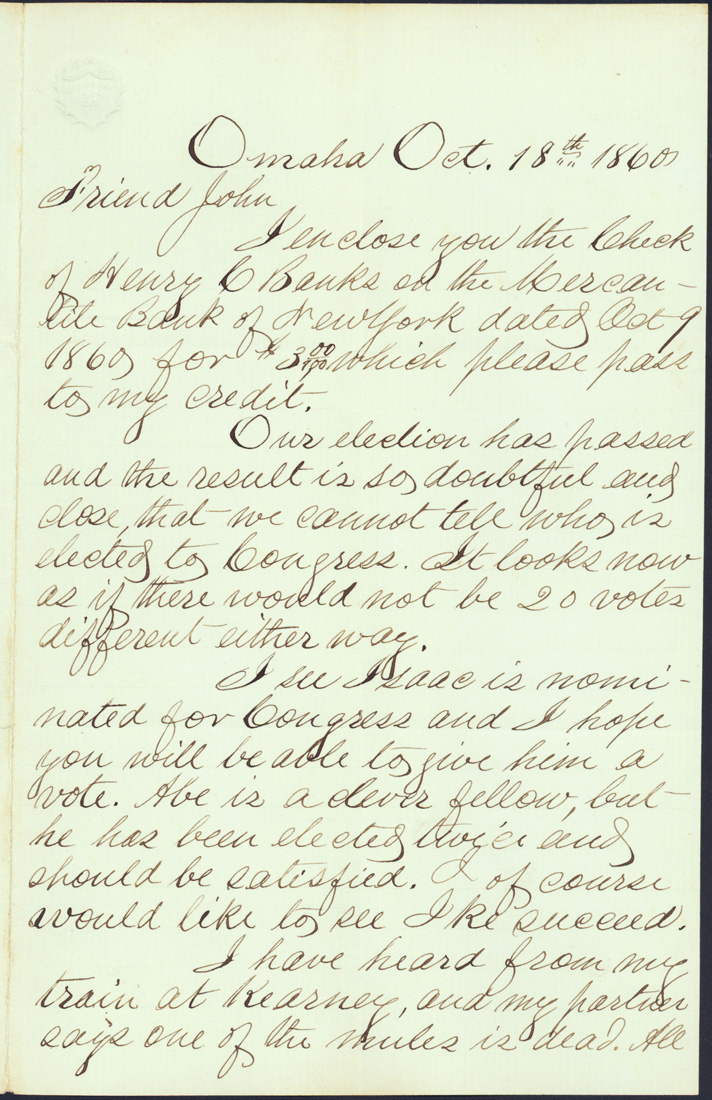 Omaha Oct. 18th 1860
Friend John
I enclose you the Check
of Henry C Banks on the Mercan-
tile Bank of New York dated Oct 9
1860 for $3 00/100 which please pass
to my credit.
Our election has passed
and the result is so doubtful and
close, that we cannot tell who is
elected to Congress. It looks now
as if there would not be 20 votes
different either way.
I see Isaac is nomi-
nated for Congress and I hope
you will be able to give him a
vote. Abe is a clever fellow, but
he has been elected twice and
should be satisfied. I of course
would like to see Ike succeed.
I have heard from my
train at Kearney, and my partner
says one of the mules is dead. All